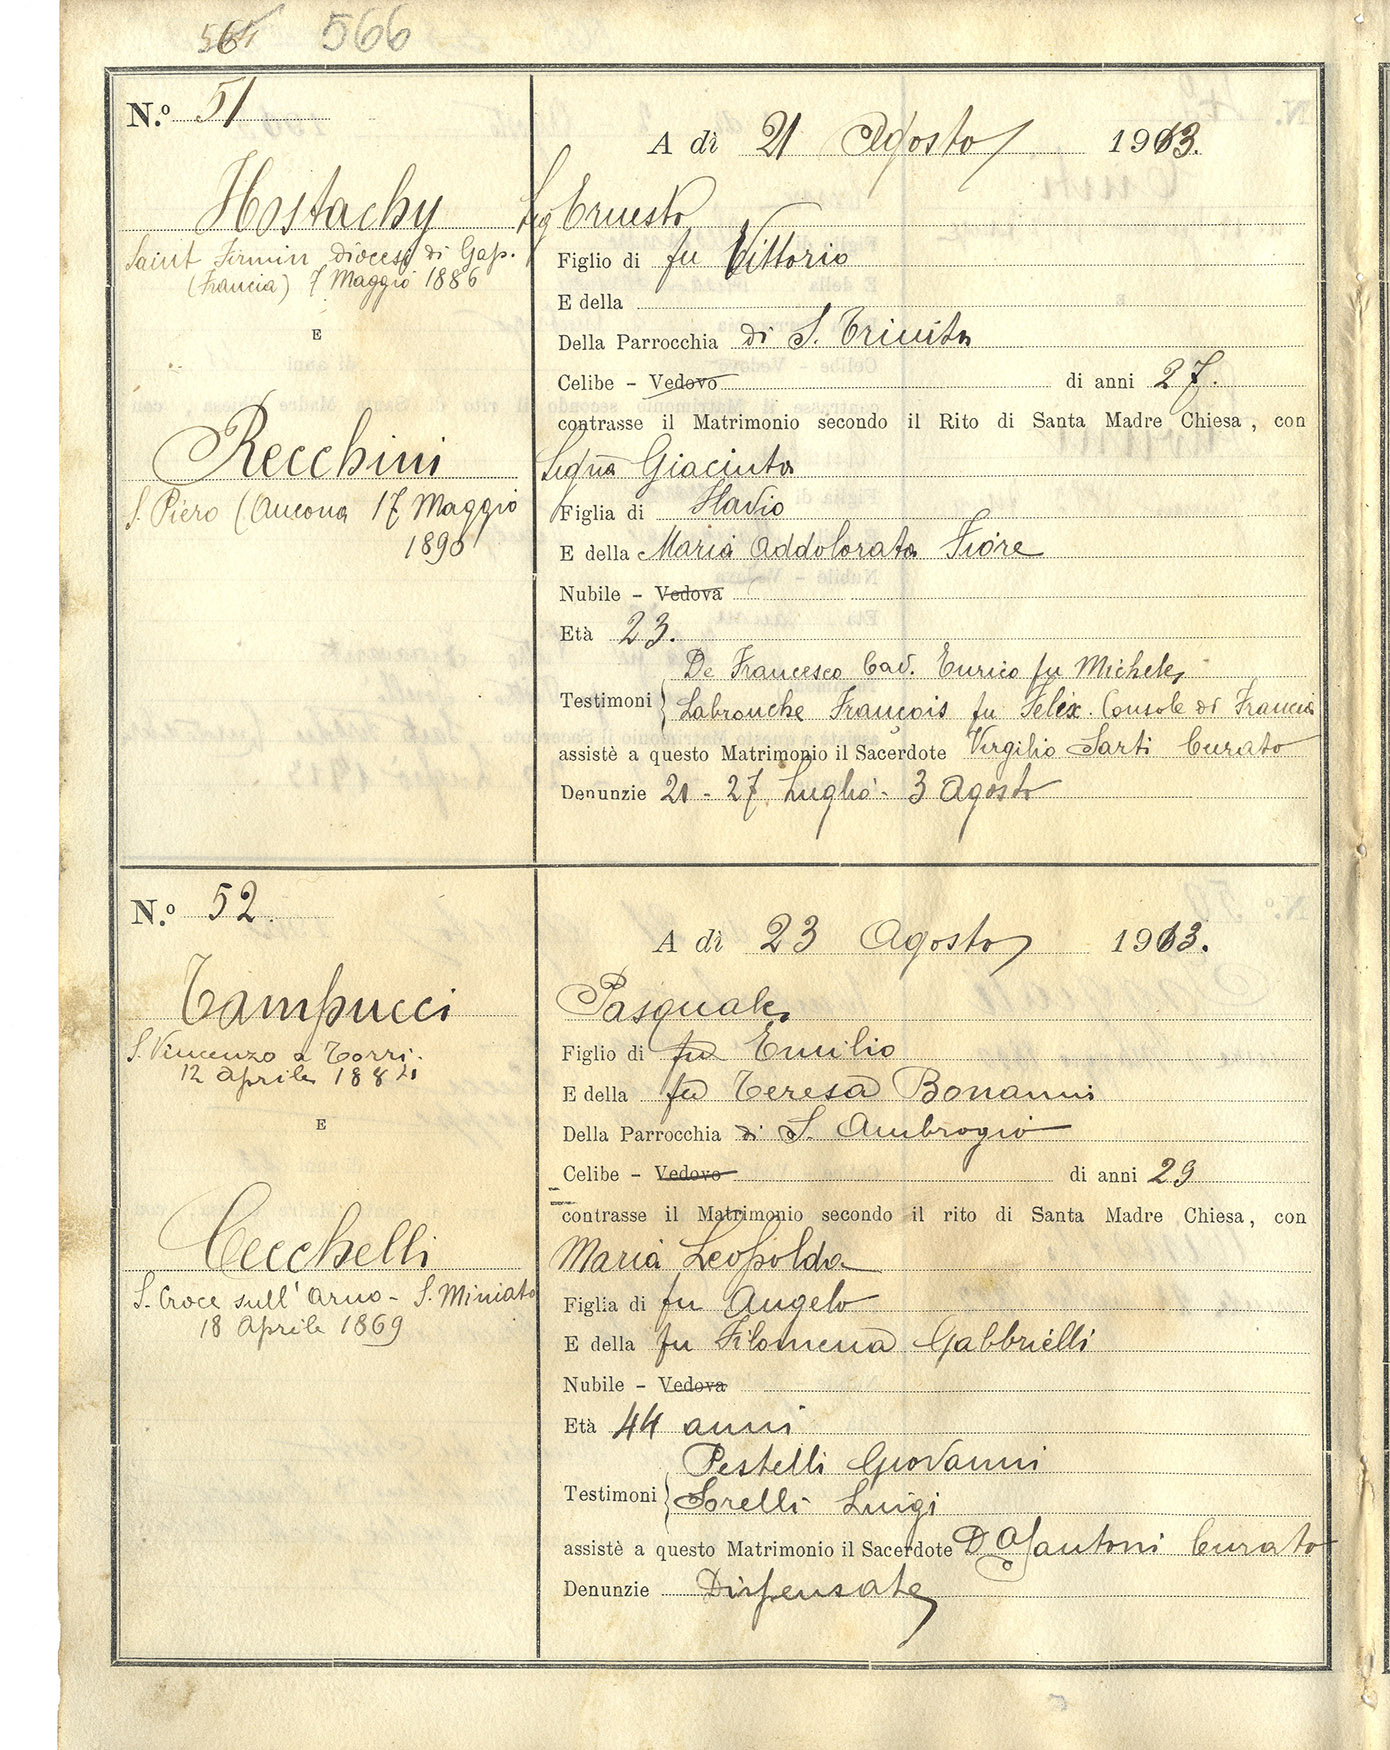 566
N.º 51
Hostachy
Saint Firmin diocesi di Gap.
(Francia) 7 Maggio 1886
E
Recchini
S. Piero (Ancona 17 Maggio
1890
A dì 21 Agosto 1913.
Sig Ernesto
Figlio di fu Vittorio
E della
Della Parrocchia di S. Trinita
Celibe - Vedovo di anni 27.
contrasse il Matrimonio secondo il Rito di Santa Madre Chiesa, con
Signa Giacinta
Figlia di Flavio
E della Maria Addolorata Fiore
Nubile - Vedova
Età 23.
De Francesco Cav. Enrico fu Michele
Testimoni
Labrouche François fu Felix. Console di Francia
assistè a questo Matrimonio il Sacerdote Virgilio Sarti Curato
Denunzie 20 - 27 Luglio - 3 Agosto
N.º 52.
Tampucci
S. Vincenzo a Torri.
12 Aprile 1884
E
Cecchelli
S. Croce sull' Arno - S. Miniato
18 Aprile 1869
A dì 23 Agosto 1913.
Pasquale
Figlio di fu Emilio
E della fu Teresa Bonanni
Della Parrocchia di S. Ambrogio
Celibe - Vedovo di anni 29
contrasse il Matrimonio secondo il rito di Santa Madre Chiesa, con
Maria Leopolda
Figlia di fu Angelo
E della fu Filomena Gabbrielli
Nubile - Vedova
Età 44 anni
Pestelli Giovanni
Testimoni
Sorelli Luigi
assistè a questo Matrimonio il Sacerdote D Santoni Curato
Denunzie Dispensate